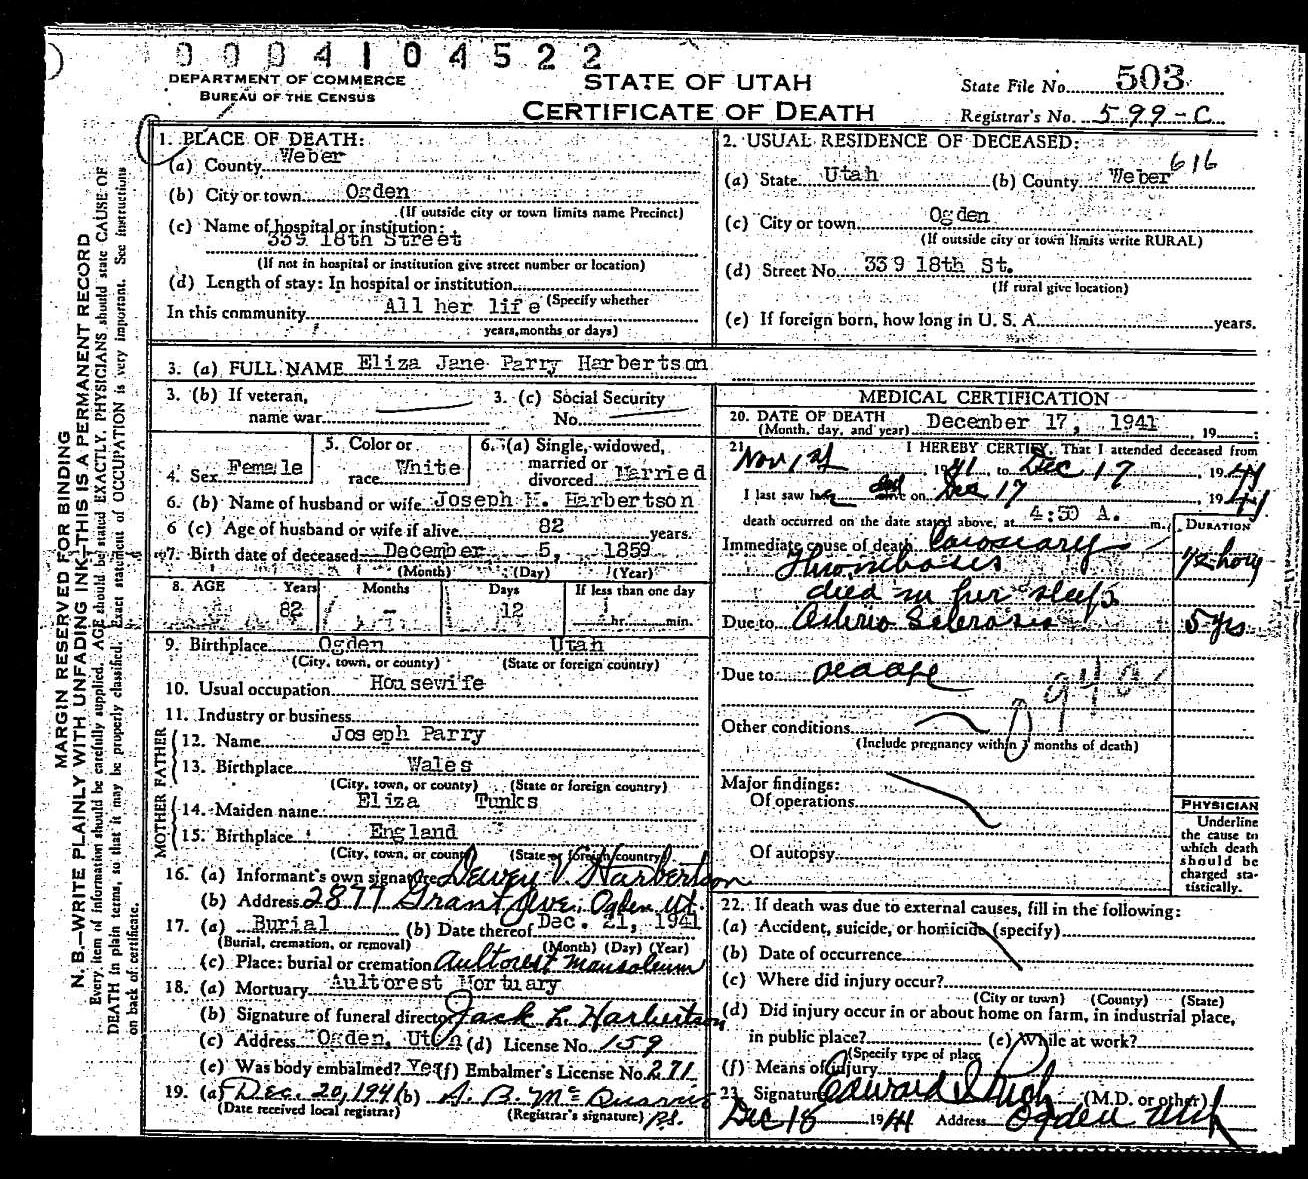 0004104522
DEPARTMENT OF COMMERCE
BUREAU OF THE CENSUS
STATE OF UTAH
CERTIFICATE OF DEATH
State File No. 503
Registrar's No. 599-C
MARGIN RESERVED FOR BINDING
N. B.—WRITE PLAINLY WITH UNFADING INK—THIS IS A PERMANENT RECORD
Every item of information should be carefully supplied. AGE should be stated EXACTLY. PHYSICIANS should state CAUSE OF
DEATH in plain terms, so that it may be properly classified. Exact statement of OCCUPATION is very important. See instructions
on back of certificate.
1. PLACE OF DEATH:
(a) County Weber
(b) City or town Ogden
(If outside city or town limits name Precinct)
(c) Name of hospital or institution:
339 18th Street
(If not in hospital or institution give street number or location)
(d) Length of stay: In hospital or institution
(Specify whether
In this community All her life
years, months or days)
2. USUAL RESIDENCE OF DECEASED:
616
(a) State Utah (b) County Weber
(c) City or town Ogden
(If outside city or town limits write RURAL)
(d) Street No. 339 18th St.
(If rural give location)
(e) If foreign born, how long in U. S. A. years.
3. (a) FULL NAME Eliza Jane Parry Harbertson
3. (b) If veteran,
name war
3. (c) Social Security
No.
4. Sex Female
5. Color or
race White
6. (a) Single, widowed,
married or
divorced Married
6. (b) Name of husband or wife Joseph M. Harbertson
6 (c) Age of husband or wife if alive 82 years.
7. Birth date of deceased December 5, 1859
(Month) (Day) (Year)
8. AGE Years Months Days If less than one day
82 - 12 hr. min.
9. Birthplace Ogden Utah
(City, town, or county) (State or foreign country)
10. Usual occupation Housewife
11. Industry or business
FATHER
12. Name Joseph Parry
13. Birthplace Wales
(City, town, or county) (State or foreign country)
MOTHER
14. Maiden name Eliza Tunks
15. Birthplace England
(City, town, or county) (State or foreign country)
16. (a) Informant's own signature Dewey V Harbertson
(b) Address 2877 Grant Ave. Ogden Ut.
17. (a) Burial (b) Date thereof Dec. 21, 1941
(Burial, cremation, or removal) (Month) (Day) (Year)
(c) Place: burial or cremation Aultorest Mausoleum
18. (a) Mortuary Aultorest Mortuary
(b) Signature of funeral director Jack L. Harbertson
(c) Address Ogden, Utah (d) License No. 159
(e) Was body embalmed? Yes (f) Embalmer's License No. 271
19. (a) Dec. 20, 1941 (b)
(Date received local registrar) (Registrar's signature)
MEDICAL CERTIFICATION
20. DATE OF DEATH December 17, 1941, 19
(Month, day, and year)
21. I HEREBY CERTIFY, That I attended deceased from
Nov 1st, 1941 to Dec 17, 1941
I last saw her alive on Dec 17, 1941
death occurred on the date stated above, at 4:30 A. m.
DURATION
Immediate cause of death Coronary
Thrombosis 1/2 hour
died in her sleep
Due to Arterio Sclerosis 5 yrs
Due to old age
094a
Other conditions
(Include pregnancy within 3 months of death)
Major findings:
Of operations
Of autopsy
PHYSICIAN
Underline
the cause to
which death
should be
charged sta-
tistically.
22. If death was due to external causes, fill in the following:
(a) Accident, suicide, or homicide (specify)
(b) Date of occurrence
(c) Where did injury occur?
(City or town) (County) (State)
(d) Did injury occur in or about home on farm, in industrial place,
in public place? (e) While at work?
(Specify type of place
(f) Means of injury
23. Signature Edward I Rich (M.D. or other)
Dec 18 1941 Address Ogden Utah